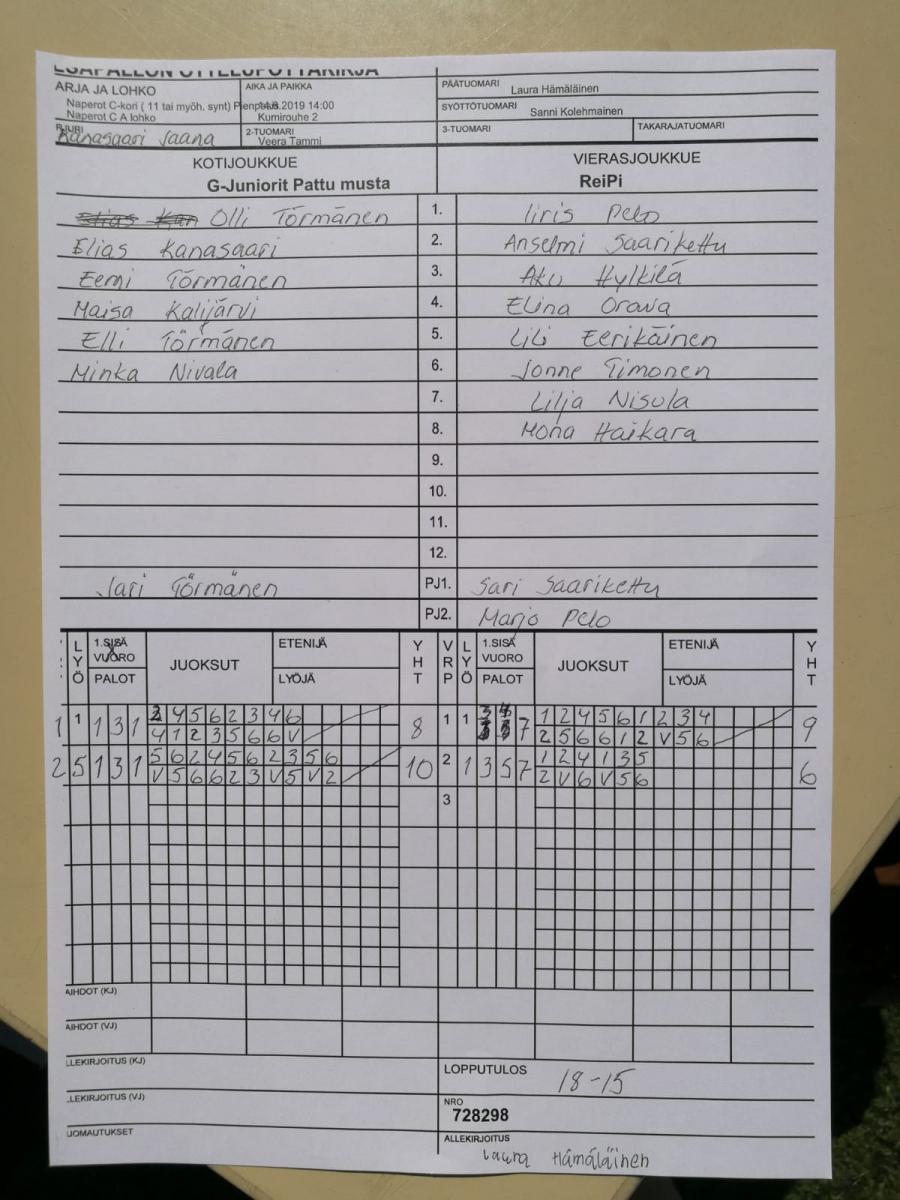 ESÄPALLON OTTELUPÖYTÄKIRJA
ARJA JA LOHKO
Naperot C-kori ( 11 tai myöh. synt) Pienpesis
Naperot C A lohko
AIKA JA PAIKKA
2019 14:00
Kumirouhe 2
PÄÄTUOMARI Laura Hämäläinen
SYÖTTÖTUOMARI Sanni Kolehmainen
Kanasaari Jaana
2-TUOMARI
Veera Tammi
3-TUOMARI
TAKARAJATUOMARI
KOTIJOUKKUE
G-Juniorit Pattu musta
VIERASJOUKKUE
ReiPi
Elias Kan Olli Törmänen 1. Iiris Pelo
Elias Kanasaari 2. Anselmi Saarikettu
Eemi Törmänen 3. Aku Hylkilä
Maisa Kalijärvi 4. Elina Orava
Elli Törmänen 5. Lili Eerikäinen
Minka Nivala 6. Jonne Timonen
7. Lilja Nisula
8. Mona Haikara
9.
10.
11.
12.
Jari Törmänen PJ1. Sari Saarikettu
PJ2. Marjo Pelo
LYÖ 1.SISÄ VUORO PALOT JUOKSUT ETENIJÄ LYÖJÄ YHT VRP LYÖ 1.SISÄ VUORO PALOT JUOKSUT ETENIJÄ LYÖJÄ YHT
1 1 1 3 1 2 4 5 6 2 3 4 6 8 1 1 7 1 2 4 5 6 1 2 3 4 9
4 1 2 3 5 6 6 V 2 5 6 6 1 2 V 5 6
2 5 1 3 1 5 6 2 4 5 6 2 3 5 6 10 2 1 3 5 7 1 2 4 1 3 5 6
V 5 6 6 2 3 V 5 V 2 2 V 6 V 5 6
3
AIHDOT (KJ)
AIHDOT (VJ)
LLEKIRJOITUS (KJ)
LOPPUTULOS 18-15
LLEKIRJOITUS (VJ)
NRO
728298
UOMAUTUKSET
ALLEKIRJOITUS
Laura Hämäläinen